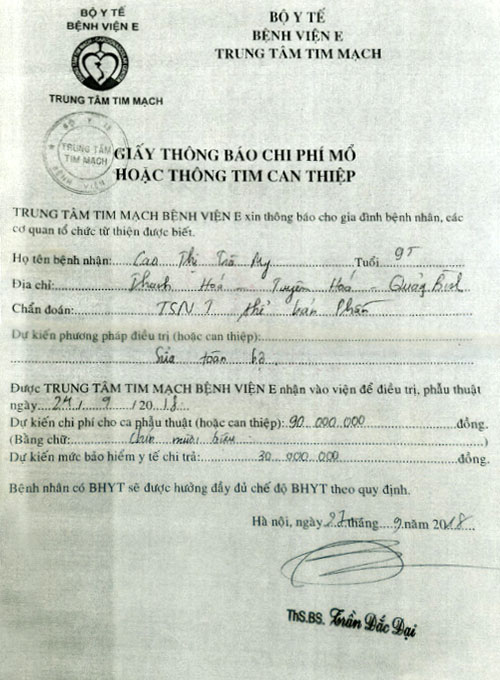 BỘ Y TẾ
BỆNH VIỆN E
TRUNG TÂM TIM MẠCH
BỘ Y TẾ
BỆNH VIỆN E
TRUNG TÂM TIM MẠCH
BỘ Y TẾ
TRUNG TÂM
TIM MẠCH
BỆNH VIỆN
GIẤY THÔNG BÁO CHI PHÍ MỔ
HOẶC THÔNG TIM CAN THIỆP
TRUNG TÂM TIM MẠCH BỆNH VIỆN E xin thông báo cho gia đình bệnh nhân, các
cơ quan tổ chức từ thiện được biết.
Họ tên bệnh nhân: Cao Thị Trà My Tuổi 9T
Địa chỉ: Thanh Hoá - Tuyên Hoá - Quảng Bình
Chẩn đoán: TSNT thể bán phần
Dự kiến phương pháp điều trị (hoặc can thiệp):
Sửa toàn bộ
Được TRUNG TÂM TIM MẠCH BỆNH VIỆN E nhận vào viện để điều trị, phẫu thuật
ngày 24 / 9 / 2018
Dự kiến chi phí cho ca phẫu thuật (hoặc can thiệp): 90 000 000 đồng.
(Bằng chữ: Chín mươi triệu)
Dự kiến mức bảo hiểm y tế chi trả: 30 000 000 đồng.
Bệnh nhân có BHYT sẽ được hưởng đầy đủ chế độ BHYT theo quy định.
Hà nội, ngày 27 tháng 9 năm 2018
ThS.BS. Trần Đắc Đại